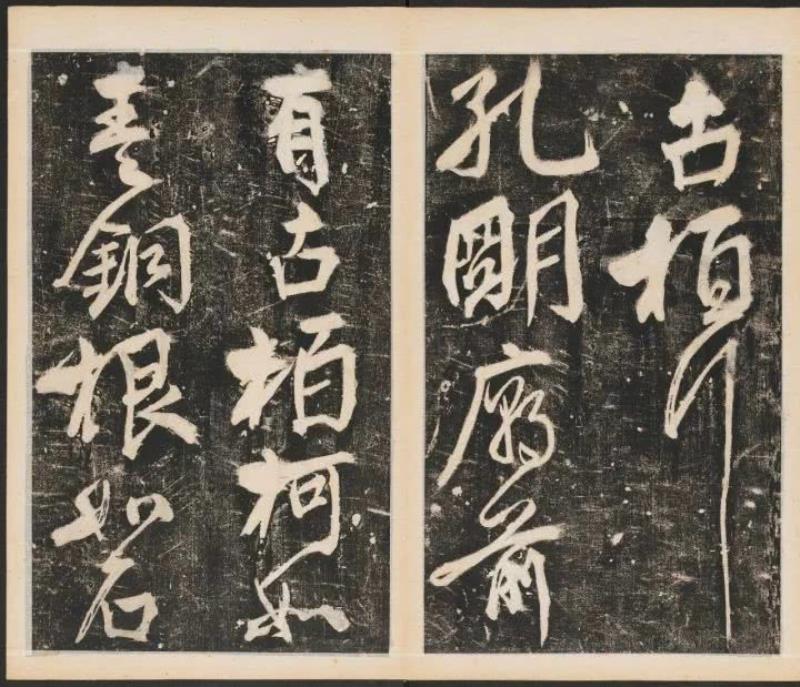 古栢行
孔朙廟前
有古栢柯如
青銅根如石